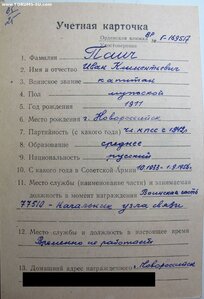 FORUMS-SU.com
65
25
Учетная карточка
Орденская книжка
ВР № Г-169517
Удостоверение
1. Фамилия Паич
2. Имя и отчество Иван Климентьевич
3. Воинское звание капитан
4. Пол мужской
5. Год рождения 1911
6. Место рождения г. Новороссийск
7. Партийность (с какого года) чл. КПСС с 1942г.
8. Образование среднее
9. Национальность русский
10. С какого года в Советской Армии 10.1933-1.9.1956г.
11. Место службы (наименование части) и занимаемая
должность в момент награждения Воинская часть
77510 - Начальник узла связи
12. Место службы и должность в настоящее время
Временно не работает
13. Домашний адрес награжденного г. Новороссийск